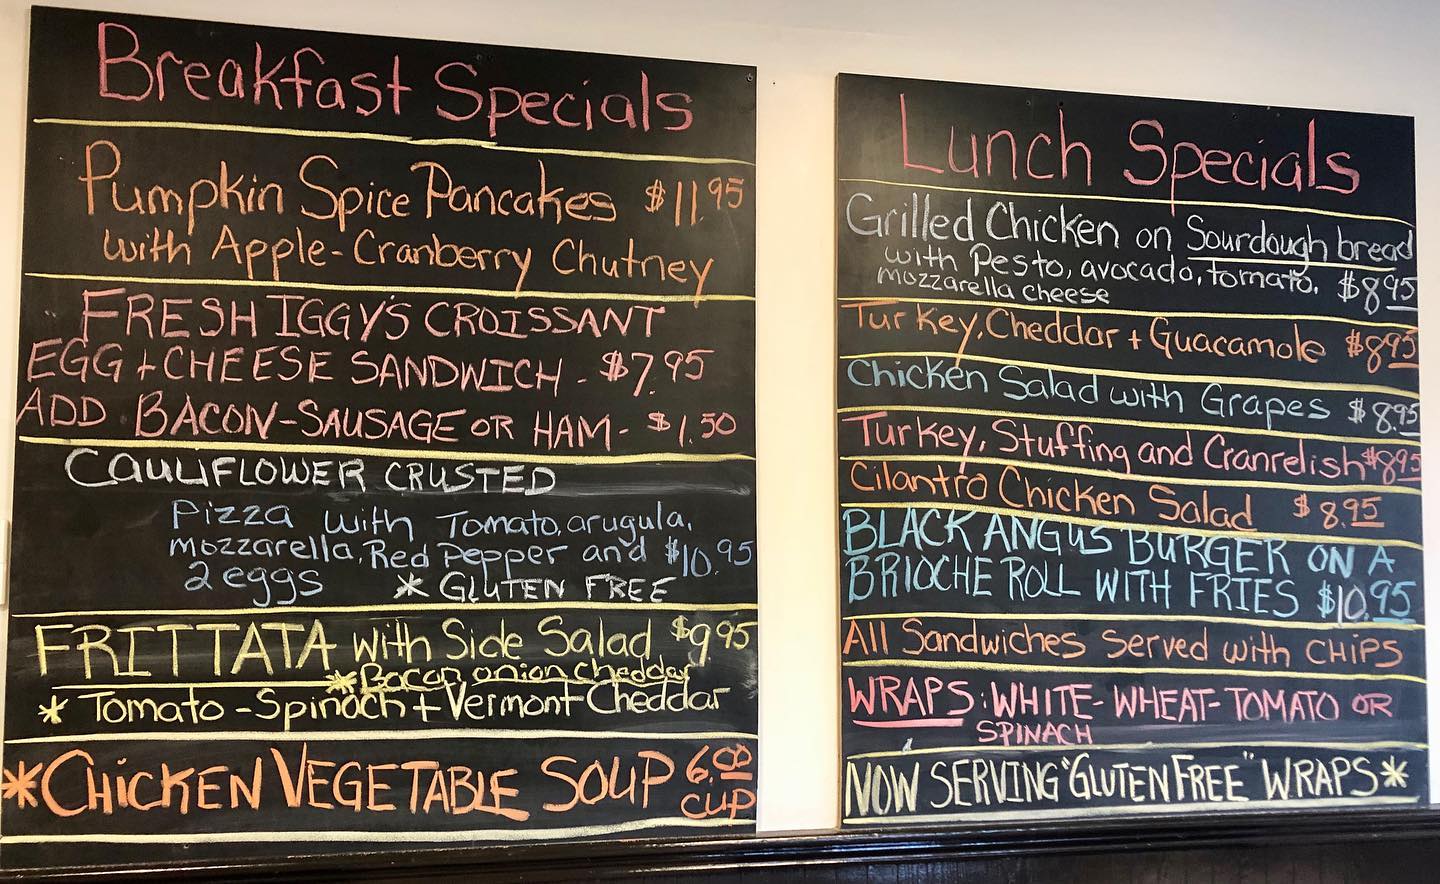 Breakfast Specials
Pumpkin Spice Pancakes $11.95
with Apple-Cranberry Chutney
FRESH IGGY'S CROISSANT
EGG + CHEESE SANDWICH - $7.95
ADD BACON-SAUSAGE OR HAM - $1.50
CAULIFLOWER CRUSTED
Pizza with Tomato, arugula,
mozzarella, Red Pepper and $10.95
2 eggs * GLUTEN FREE
FRITTATA with Side Salad $9.95
* Bacon onion cheddar
* Tomato - Spinach + Vermont Cheddar
* CHICKEN VEGETABLE SOUP 6.00
CUP
Lunch Specials
Grilled Chicken on Sourdough bread
with Pesto, avocado, tomato, $8.95
mozzarella cheese
Turkey, Cheddar + Guacamole $8.95
Chicken Salad with Grapes $8.95
Turkey, Stuffing and Cranrelish $8.95
Cilantro Chicken Salad $8.95
BLACK ANGUS BURGER ON A
BRIOCHE ROLL WITH FRIES $10.95
All Sandwiches served with CHIPS
WRAPS: WHITE- WHEAT- TOMATO OR
SPINACH
NOW SERVING "GLUTEN FREE" WRAPS *